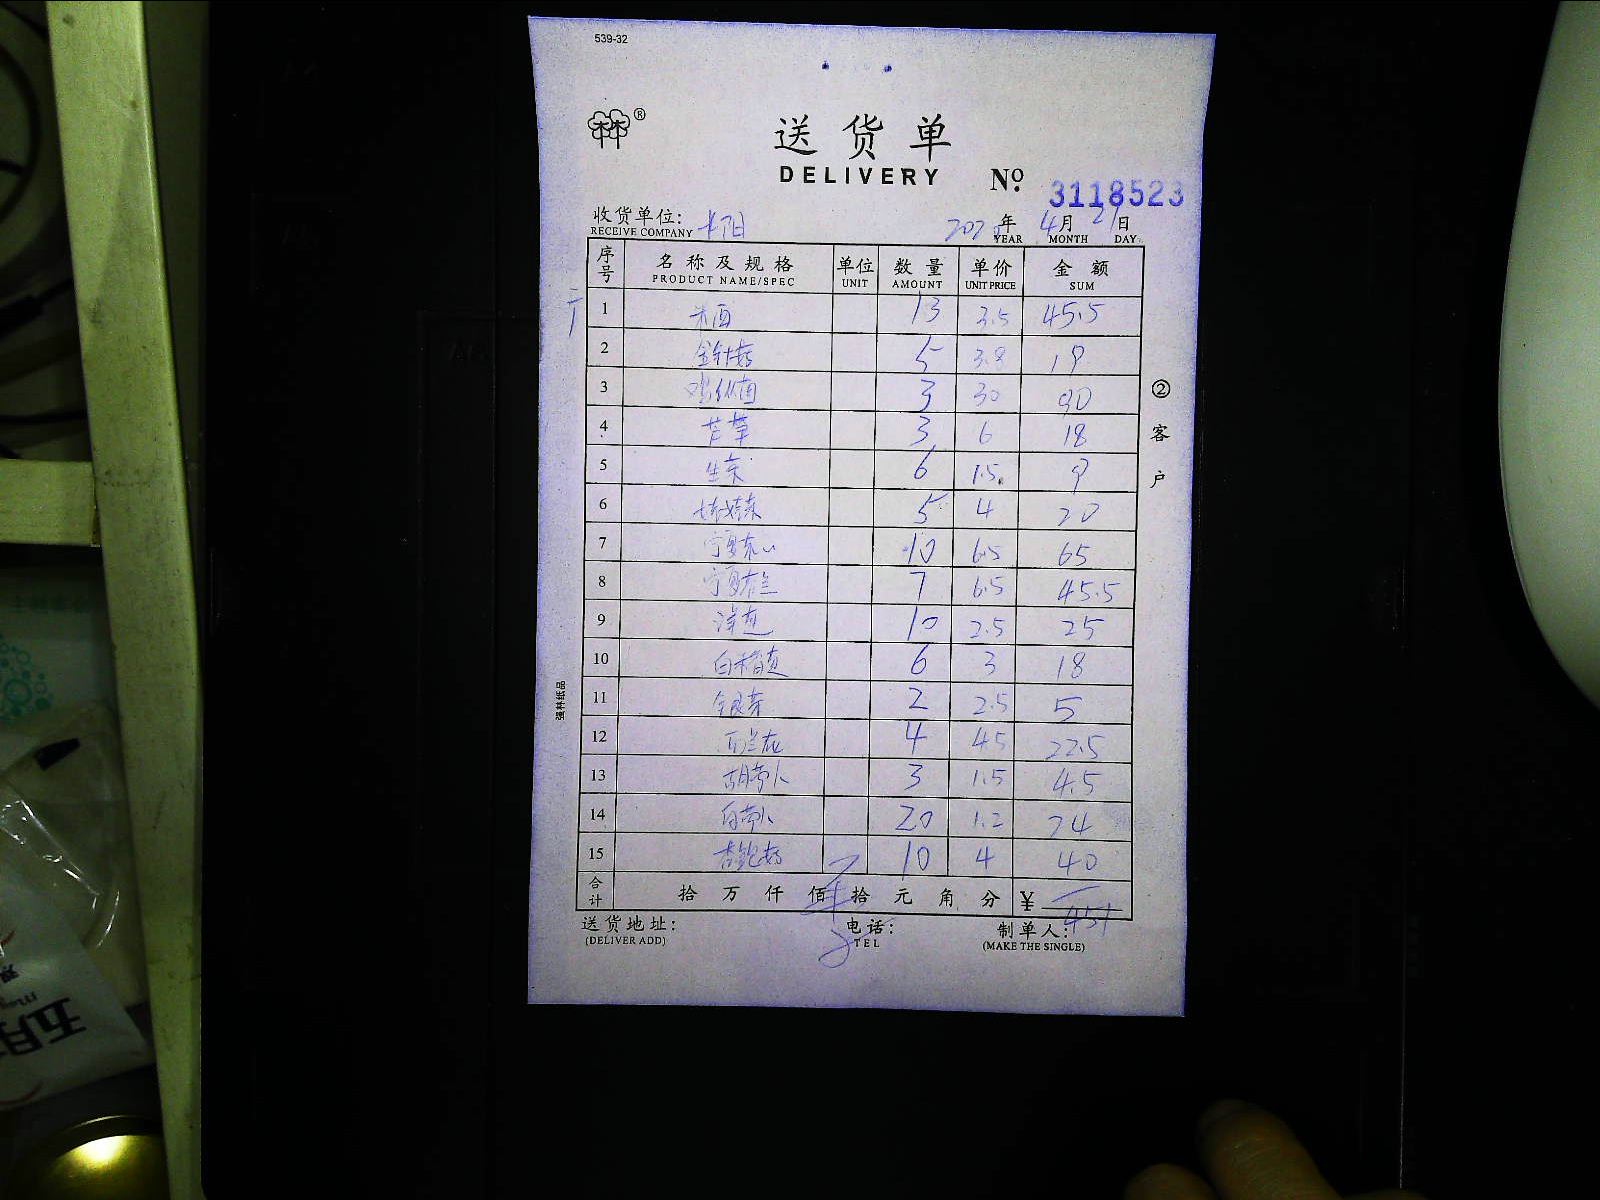 539-32
®
送货单
DELIVERY No. 3118523
收货单位: 2020年 4月 21日
RECEIVE COMPANY YEAR MONTH DAY
序号 名称及规格 单位 数量 单价 金额
PRODUCT NAME/SPEC UNIT AMOUNT UNIT PRICE SUM
1 米面 13 3.5 45.5
2 金针菇 5 3.8 19
3 鸡枞菌 3 30 90
4 芦笋 3 6 18
5 生菜 6 1.5 9
6 娃娃菜 5 4 20
7 宁夏菜心 10 6.5 65
8 宁夏芥兰 7 6.5 45.5
9 洋葱 10 2.5 25
10 白米 6 3 18
11 银芽 2 2.5 5
12 西兰花 4 4.5 22.5
13 胡萝卜 3 1.5 4.5
14 白萝卜 20 1.2 24
15 杏鲍菇 10 4 40
合计 拾 万 仟 佰 拾 元 角 分 ¥ 451
送货地址: 电话: 制单人:
(DELIVER ADD) TEL (MAKE THE SINGLE)
②客户
强林纸品
五月